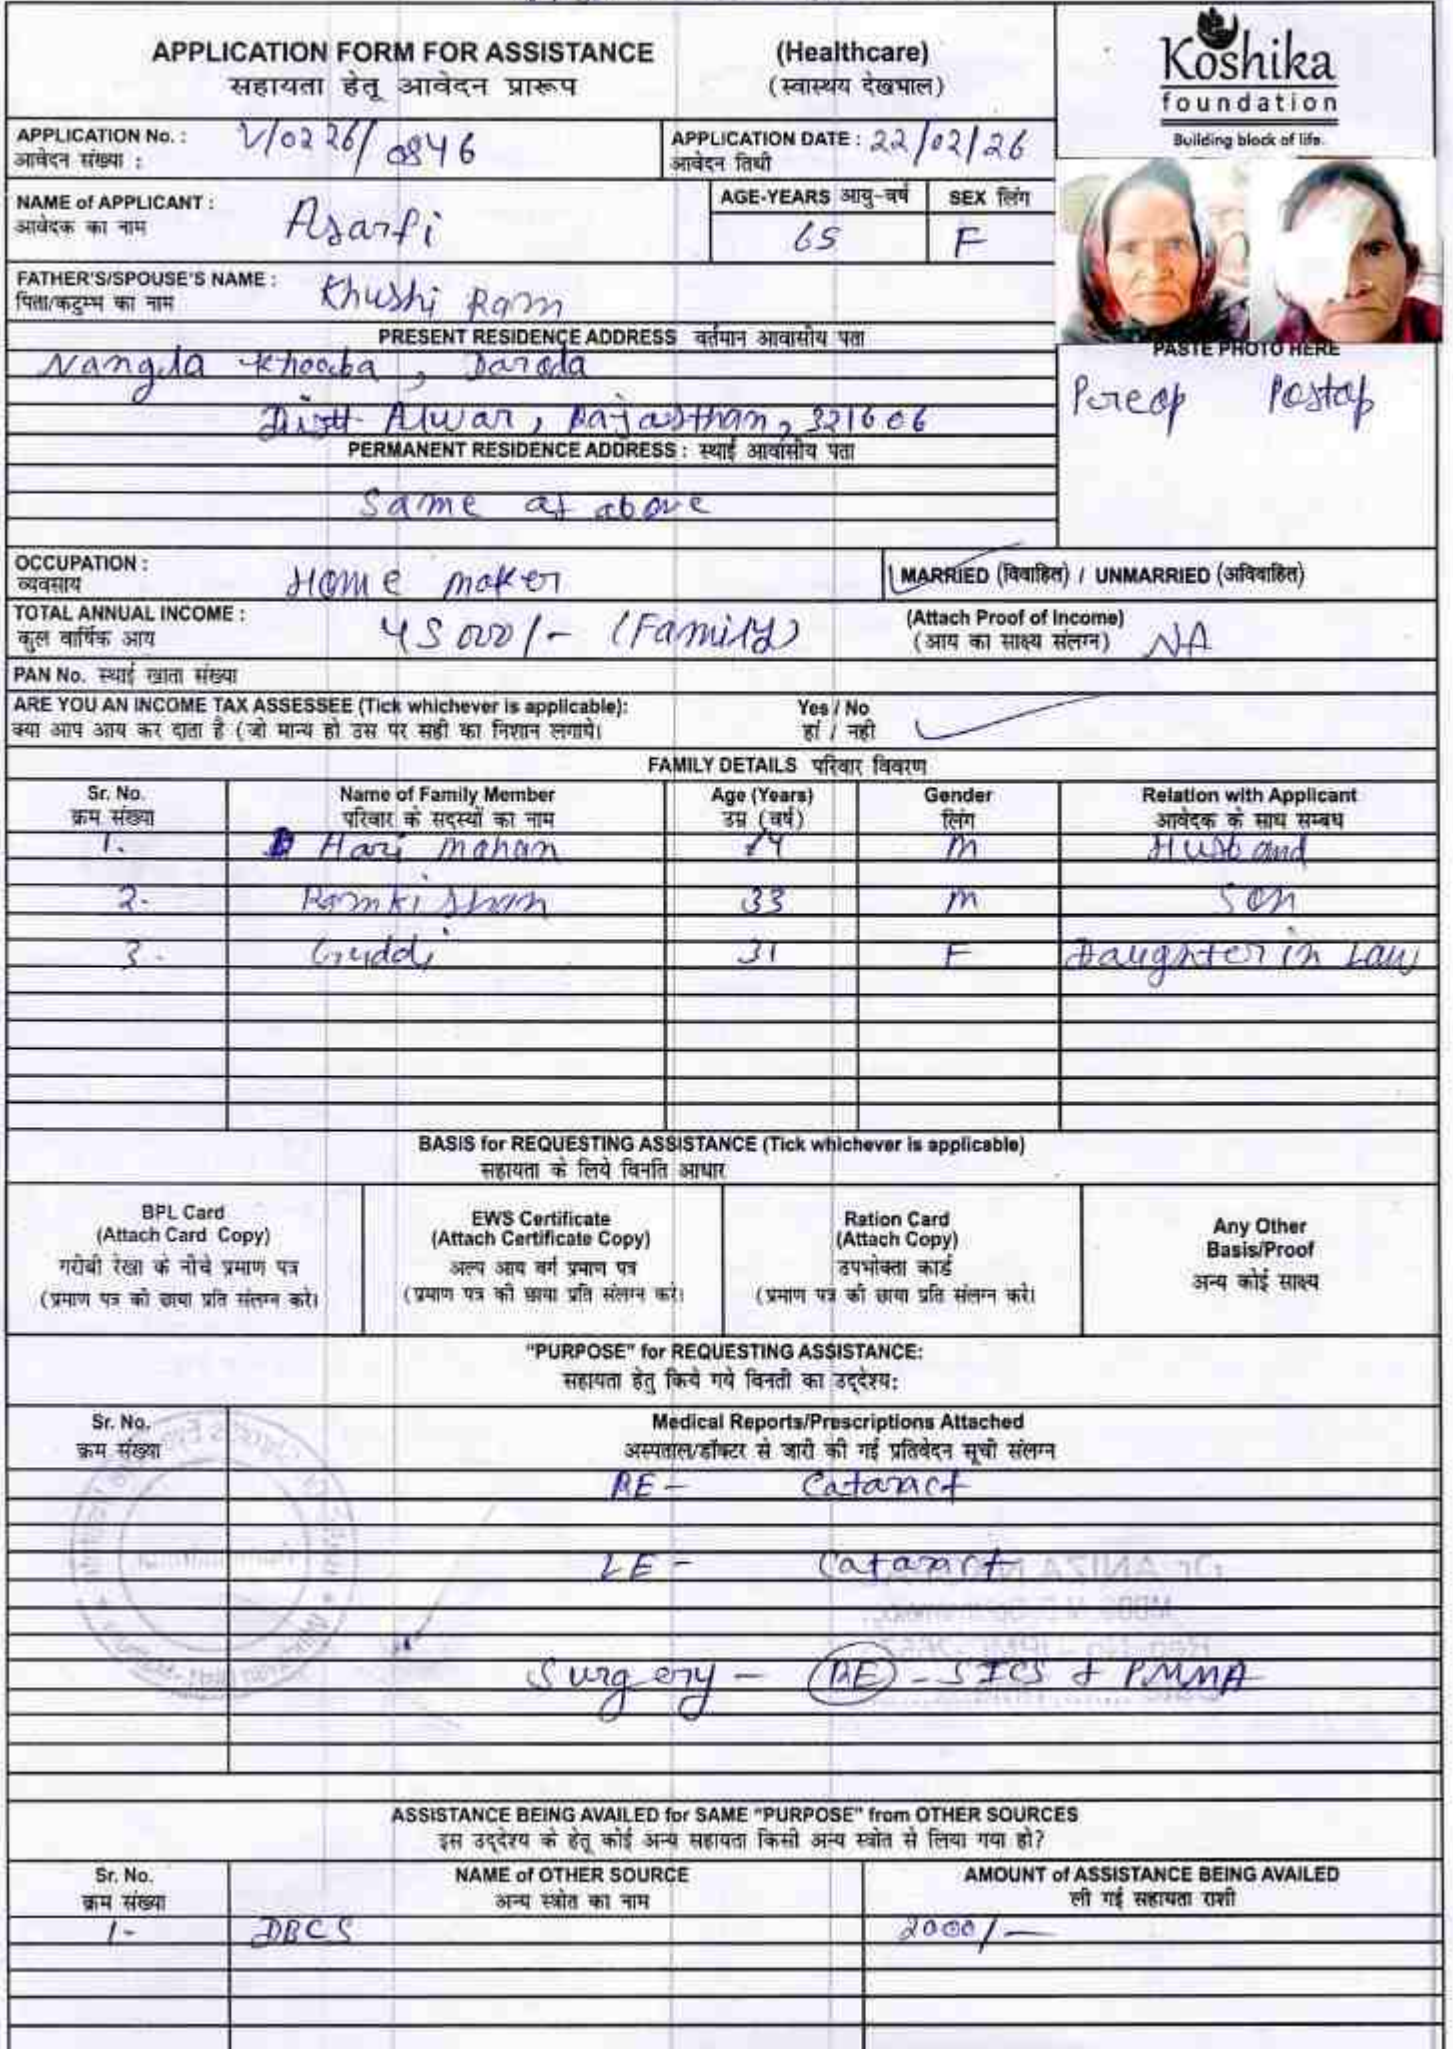 APPLICATION FORM FOR ASSISTANCE (Healthcare)
सहायता हेतू आवेदन प्रारूप (स्वास्थय देखभाल)
Koshika
foundation
Building block of life.
APPLICATION No. : V/0226/0846
आवेदन संख्या :
APPLICATION DATE : 22/02/26
आवेदन तिथी
NAME of APPLICANT : Asarfi
आवेदक का नाम
AGE-YEARS आयु-वर्ष SEX लिंग
65 F
FATHER'S/SPOUSE'S NAME : Khushi Ram
पिता/कटुम्ब का नाम
PRESENT RESIDENCE ADDRESS वर्तमान आवासीय पता
Nangla
Distt- Alwar, Rajasthan, 321606
PASTE PHOTO HERE
Preop Postop
PERMANENT RESIDENCE ADDRESS : स्थाई आवासीय पता
Same as above
OCCUPATION : Home maker
व्यवसाय
MARRIED (विवाहित) / UNMARRIED (अविवाहित)
TOTAL ANNUAL INCOME : 45000/- (Family)
कुल वार्षिक आय
(Attach Proof of Income)
(आय का साक्ष्य संलग्न) NA
PAN No. स्थाई खाता संख्या
ARE YOU AN INCOME TAX ASSESSEE (Tick whichever is applicable): Yes / No
क्या आप आय कर दाता है (जो मान्य हो उस पर सही का निशान लगाये। हां / नही
FAMILY DETAILS परिवार विवरण
Sr. No. Name of Family Member Age (Years) Gender Relation with Applicant
क्रम संख्या परिवार के सदस्यों का नाम उम्र (वर्ष) लिंग आवेदक के साथ सम्बध
1. Hari mohan M Husband
2. Ramkishan 33 M Son
3. Guddi 31 F Daughter in Law
BASIS for REQUESTING ASSISTANCE (Tick whichever is applicable)
सहायता के लिये विनति आधार
BPL Card
(Attach Card Copy)
गरीबी रेखा के नीचे प्रमाण पत्र
(प्रमाण पत्र की छाया प्रति संलग्न करे।
EWS Certificate
(Attach Certificate Copy)
अल्प आय वर्ग प्रमाण पत्र
(प्रमाण पत्र की छाया प्रति संलग्न करे।
Ration Card
(Attach Copy)
उपभोक्ता कार्ड
(प्रमाण पत्र की छाया प्रति संलग्न करे।
Any Other
Basis/Proof
अन्य कोई साक्ष्य
"PURPOSE" for REQUESTING ASSISTANCE:
सहायता हेतु किये गये विनती का उद्देश्य:
Sr. No. Medical Reports/Prescriptions Attached
क्रम संख्या अस्पताल/डॉक्टर से जारी की गई प्रतिवेदन सूची संलग्न
RE - Cataract
LE - Cataract
Surgery - RE - SICS + PMMA
ASSISTANCE BEING AVAILED for SAME "PURPOSE" from OTHER SOURCES
इस उद्देश्य के हेतू कोई अन्य सहायता किसी अन्य स्त्रोत से लिया गया हो?
Sr. No. NAME of OTHER SOURCE AMOUNT of ASSISTANCE BEING AVAILED
क्रम संख्या अन्य स्त्रोत का नाम ली गई सहायता राशी
1- DBCS 2000/-